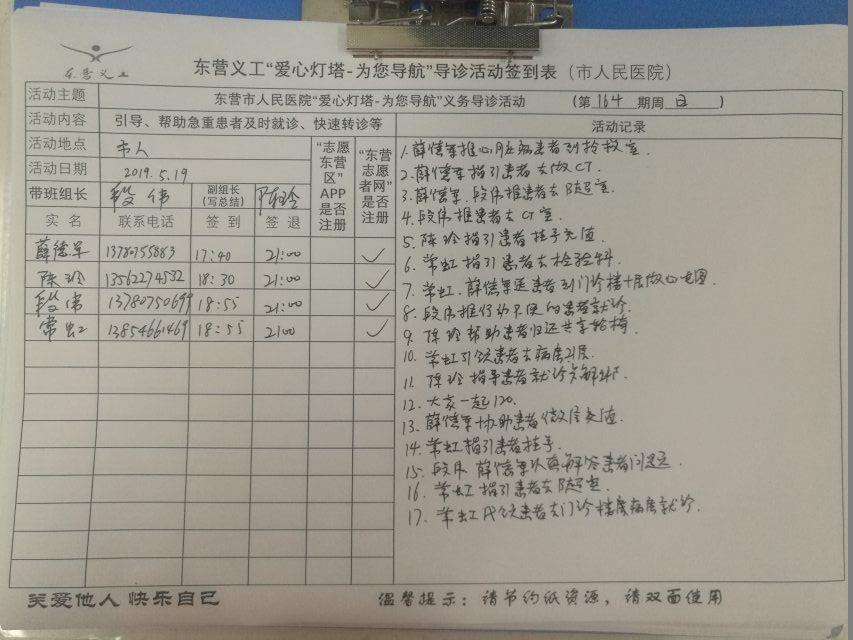 东营义工
东营义工“爱心灯塔-为您导航”导诊活动签到表（市人民医院）
活动主题 东营市人民医院“爱心灯塔-为您导航”义务导诊活动 （第 164 期周 日 ）
活动内容 引导、帮助急重患者及时就诊、快速转诊等
活动地点 市人
活动日期 2019.5.19
带班组长 段伟 副组长（写总结） 陈玲
“志愿东营区”APP是否注册
“东营志愿者网”是否注册
实名 联系电话 签到 签退
薛德军 13780755883 17:40 21:00 ✓
陈玲 13562274532 18:30 21:00 ✓
段伟 13780750699 18:55 21:00 ✓
常虹 13854661469 18:55 2100 ✓
活动记录
1. 薛德军推心脏病患者到抢救室.
2. 薛德军指引患者去做CT.
3. 薛德军.段伟推患者去B超室.
4. 段伟推患者去CT室.
5. 陈玲指引患者挂号充值.
6. 常虹指引患者去检验科.
7. 常虹.薛德军送患者到门诊楼十层做心电图.
8. 段伟推行动不便的患者就诊.
9. 陈玲帮助患者归还共享轮椅.
10. 常虹引领患者去病房21层.
11. 陈玲指导患者就诊
12. 大家一起120.
13. 薛德军协助患者做充值.
14. 常虹指引患者挂号.
15. 段伟 薛德军认真解答患者问题.
16. 常虹指引患者去B超室.
17. 常虹引领患者去门诊楼病房就诊.
关爱他人 快乐自己
温馨提示：请节约纸资源，请双面使用